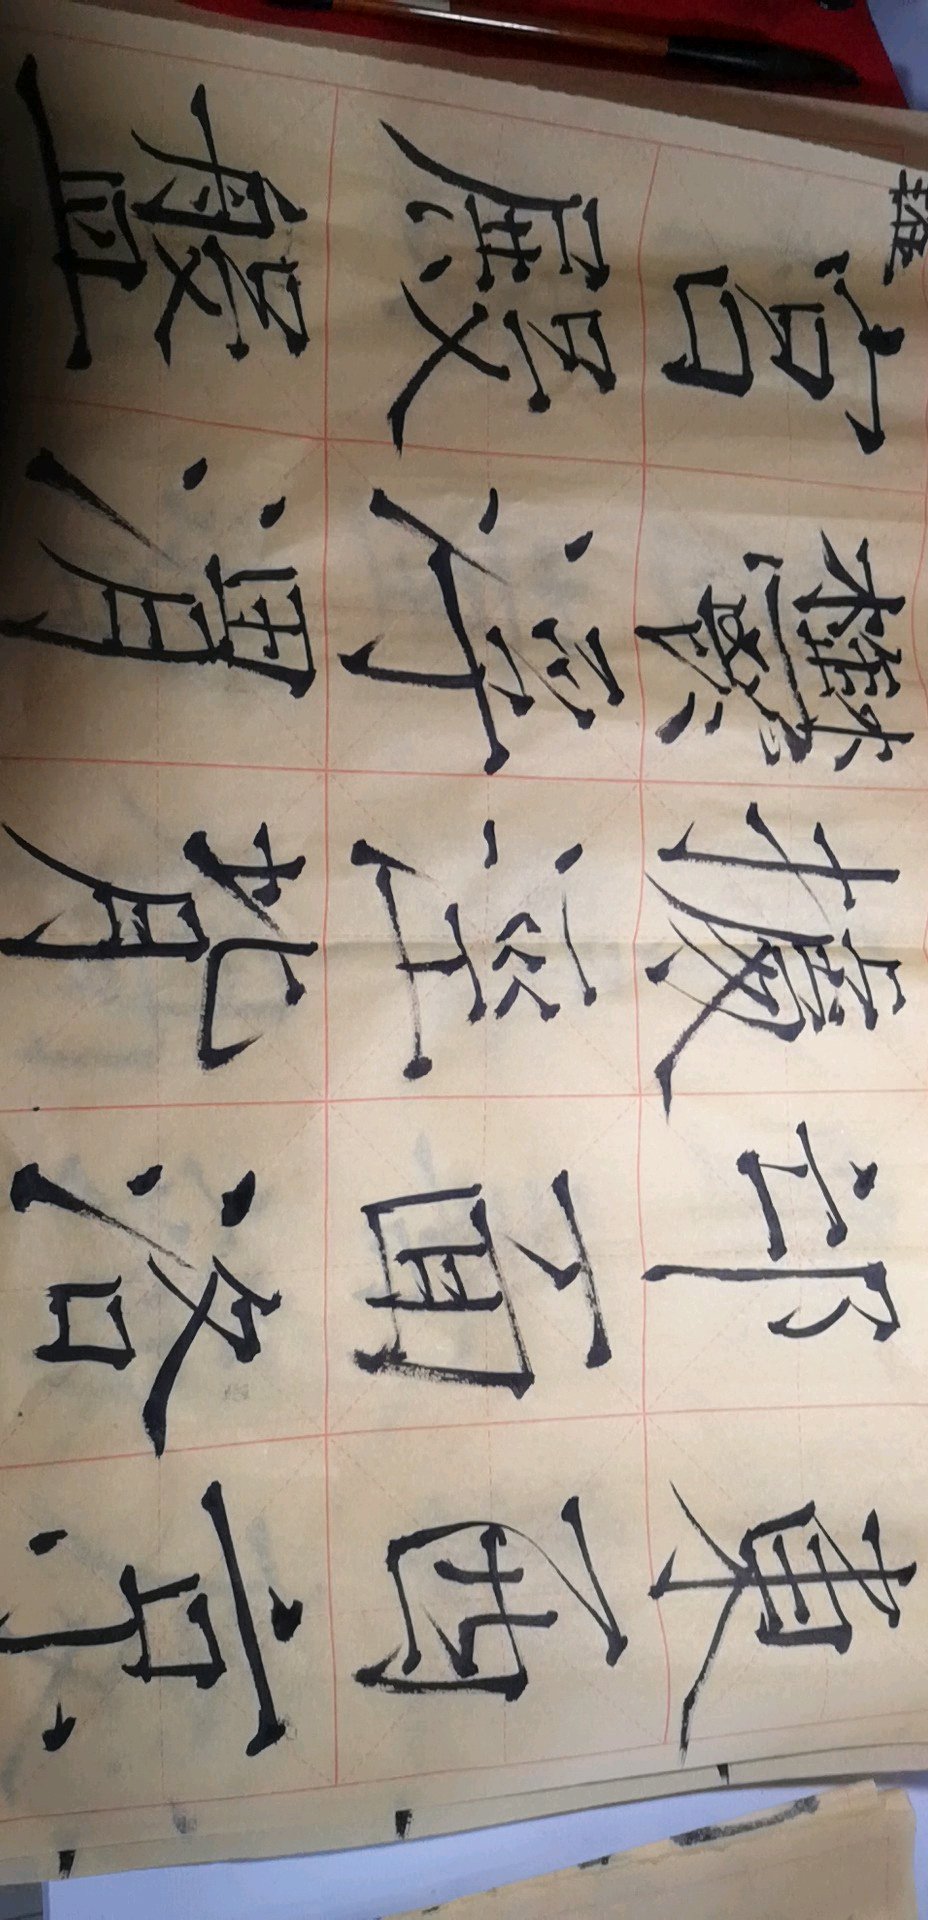 東西京
邙面洛
據涇背
鬱浮渭
宮殿盤